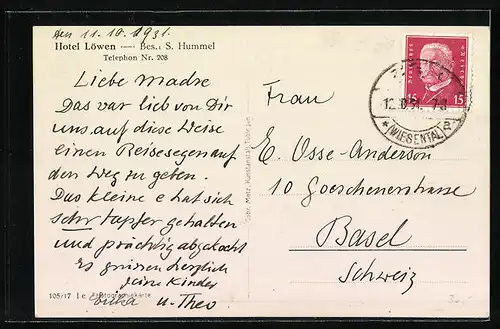 den 11.10.1931.
Hotel Löwen — Bes.: S. Hummel
Telephon Nr. 208
Liebe Madre
Das war lieb von Dir
uns auf diese Weise
einen Reisesegen auf
den Weg zu geben.
Das kleine e hat sich
sehr tapfer gehalten
und prächtig abgekocht
Es grüssen herzlich
Deine Kinder
u. Theo
105/17 I.c Photographiekarte
Gebr. Metz, Kunstanstalt, Tübingen
DEUTSCHES REICH
15 15
12.10.31. 7-8
* (WIESENTAL) a
Frau
E. Osse-Anderson
10 Goeschenerstrasse
Basel
Schweiz